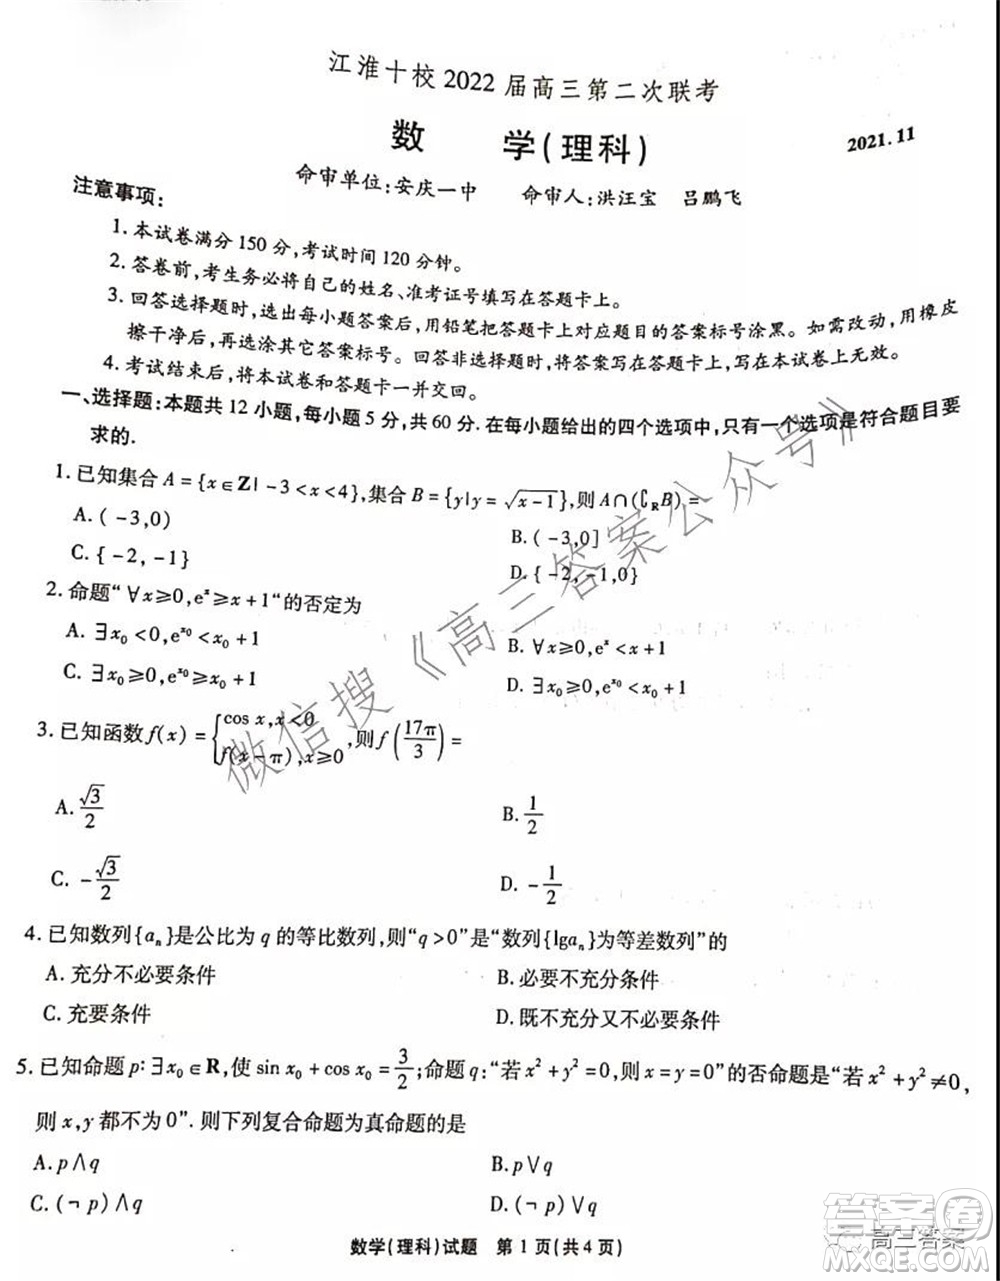 江淮十校2022届高三第二次联考
数 学(理科)
2021.11
命审单位:安庆一中 命审人:洪汪宝 吕鹏飞
注意事项:
1.本试卷满分150分,考试时间120分钟。
2.答卷前,考生务必将自己的姓名、准考证号填写在答题卡上。
3.回答选择题时,选出每小题答案后,用铅笔把答题卡上对应题目的答案标号涂黑。如需改动,用橡皮
擦干净后,再选涂其它答案标号。回答非选择题时,将答案写在答题卡上,写在本试卷上无效。
4.考试结束后,将本试卷和答题卡一并交回。
一、选择题:本题共12小题,每小题5分,共60分.在每小题给出的四个选项中,只有一个选项是符合题目要
求的.
1.已知集合A={x∈Z|-3<x<4},集合B={y|y=√(x-1)},则A∩(∁RB)=
A.(-3,0) B.(-3,0]
C.{-2,-1} D.{-2,-1,0}
2.命题“∀x≥0,eˣ≥x+1”的否定为
A.∃x₀<0,e^x₀<x₀+1 B.∀x≥0,eˣ<x+1
C.∃x₀≥0,e^x₀≥x₀+1 D.∃x₀≥0,e^x₀<x₀+1
3.已知函数f(x)={cos x,x<0
f(x-π),x≥0,则f(17π/3)=
A.√3/2 B.1/2
C.-√3/2 D.-1/2
4.已知数列{aₙ}是公比为q的等比数列,则“q>0”是“数列{lgaₙ}为等差数列”的
A.充分不必要条件 B.必要不充分条件
C.充要条件 D.既不充分又不必要条件
5.已知命题p:∃x₀∈R,使sin x₀+cos x₀=3/2;命题q:“若x²+y²=0,则x=y=0”的否命题是“若x²+y²≠0,
则x,y都不为0”.则下列复合命题为真命题的是
A.p∧q B.p∨q
C.(¬p)∧q D.(¬p)∨q
数学(理科)试题 第1页(共4页)
微信搜《高三答案公众号》
答案圈
高三答案